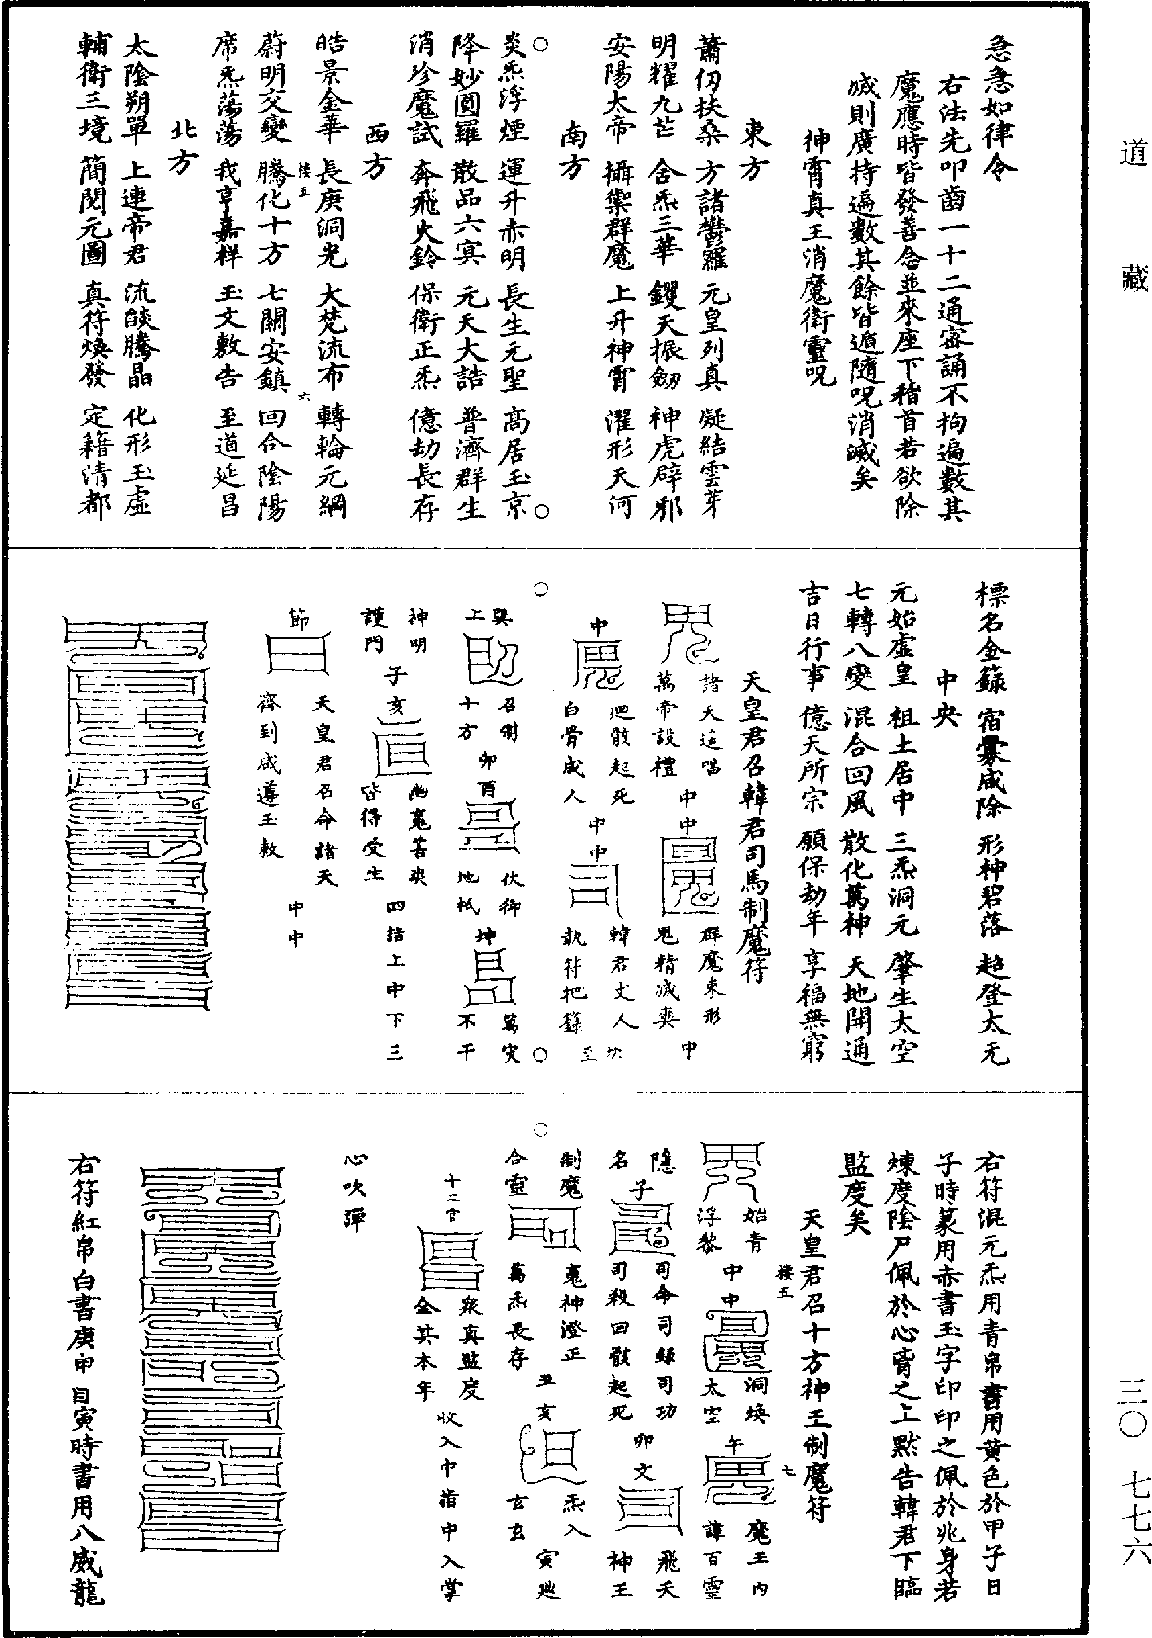 急急如律令
右法先叩齒一十二通密誦不拘遍數其
魔應時皆發善念並來座下稽首若欲除
滅則廣持遍數其餘皆遁隨呪消滅矣
神霄真王消魔衛靈呪
東方
蕭仞扶桑 方諸鬱羅 元皇列真 凝結雲芽
明耀九芒 含炁三華 钁天振劒 神虎辟邪
安陽太帝 攝禦群魔 上升神霄 濯形天河
南方
炎炁浮煙 運升赤明 長生元聖 高居玉京
降妙圓羅 散品六冥 元天大誥 普濟群生
消殄魔試 奔飛火鈴 保衛正炁 億劫長存
西方
皓景金華 長庚洞光 大梵流布 轉輪元綱
蔚明交變 騰化十方 七關安鎮 回合陰陽
席炁蕩蕩 我享嘉祥 玉文敷告 至道延昌
北方
太陰朔單 上連帝君 流燄騰晶 化形玉虛
輔衛三境 簡閱元圖 真符煥發 定籍清都
標名金籙 宿釁咸除 形神碧落 超登太无
中央
元始虛皇 祖土居中 三炁洞元 肇生太空
七轉八變 混合回風 散化萬神 天地開通
吉日行事 億天所宗 願保劫年 享福無窮
天皇君召韓君司馬制魔符
諸天這喝
萬帝設禮
中中
群魔束形
鬼精滅爽
中
中
迴骸起死
白骨成人
中中
韓君丈人
執符把籙
坎
至
巽
上
召制
十方
卯酉
伏御
地祇
坤
萬灾
不干
神明
護門
子亥
幽䰟苦爽
皆得受生
四指上中下三
節
天皇君召命諸天
齊到咸遵玉敕
中中
右符混元炁用青帛書用黄色於甲子日
子時篆用赤書玉字印印之佩於兆身若
煉度陰尸佩於心膏之上黙告韓君下臨
監度矣
天皇君召十方神王制魔符
始青
浮黎
中中
洞煥
太空
午
魔王內
諱百靈
隱
名
子
司命司錄司功
司殺回骸起死
卯文
飛天
神王
制魔
合靈
䰟神澄正
萬炁長存
丑亥
炁入
玄玄
寅
十二官
衆真監度
全其本年
收入中指中入掌
心吹彈
右符紅帛白書庚申日寅時書用八威龍
道藏
三〇 七七六